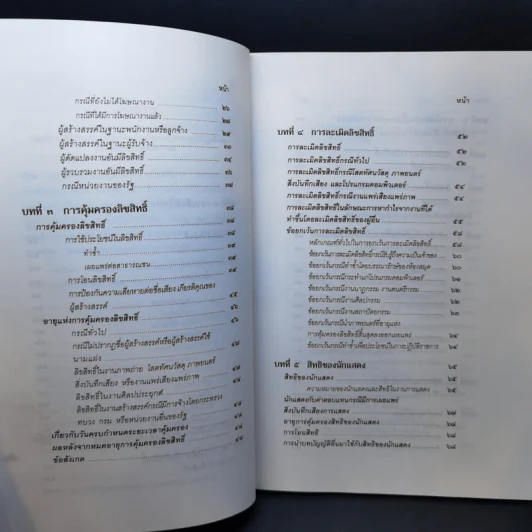 หน้า
กรณีที่ยังไม่ได้โฆษณางาน ๒๖
กรณีที่ได้มีการโฆษณางานแล้ว ๒๘
ผู้สร้างสรรค์ในฐานะพนักงานหรือลูกจ้าง ๒๙
ผู้สร้างสรรค์ในฐานะผู้รับจ้าง
ผู้ดัดแปลงงานอันมีลิขสิทธิ์
ผู้รวบรวมงานอันมีลิขสิทธิ์
กรณีหน่วยงานของรัฐ
บทที่ ๓ การคุ้มครองลิขสิทธิ์
การคุ้มครองลิขสิทธิ์
การใช้ประโยชน์ในลิขสิทธิ์
ทำซ้ำ
เผยแพร่ต่อสาธารณชน
การโอนลิขสิทธิ์
การป้องกันความเสียหายต่อชื่อเสียง เกียรติคุณของ
ผู้สร้างสรรค์ ๔๕
อายุแห่งการคุ้มครองลิขสิทธิ์ ๔๖
กรณีทั่วไป
กรณีไม่ปรากฏชื่อผู้สร้างสรรค์หรือผู้สร้างสรรค์ใช้
นามแฝง
ลิขสิทธิ์ในงานภาพถ่าย โสตทัศนวัสดุ ภาพยนตร์
สิ่งบันทึกเสียง หรืองานแพร่เสียงแพร่ภาพ
ลิขสิทธิ์ในงานศิลปประยุกต์
ลิขสิทธิ์ในงานสร้างสรรค์กรณีมีการจ้างโดยกระทรวง
ทบวง กรม หรือหน่วยงานอื่นของรัฐ
เกี่ยวกับวันครบกำหนดระยะเวลาคุ้มครอง
ผลหลังจากหมดอายุการคุ้มครองลิขสิทธิ์
ข้อสังเกต
หน้า
บทที่ ๔ การละเมิดลิขสิทธิ์ ๕๒
การละเมิดลิขสิทธิ์
การละเมิดลิขสิทธิ์กรณีทั่วไป ๕๒
การละเมิดลิขสิทธิ์กรณีโสตทัศนวัสดุ ภาพยนตร์
สิ่งบันทึกเสียง และโปรแกรมคอมพิวเตอร์ ๕๔
การละเมิดลิขสิทธิ์กรณีงานแพร่เสียงแพร่ภาพ
การละเมิดลิขสิทธิ์ในลักษณะการหากำไรจากงานที่ได้
ทำขึ้นโดยละเมิดลิขสิทธิ์ของผู้อื่น
ข้อยกเว้นการละเมิดลิขสิทธิ์
หลักเกณฑ์ทั่วไปในการยกเว้นการละเมิดลิขสิทธิ์
ข้อยกเว้นการละเมิดลิขสิทธิ์กรณีรับรู้ถึงความเป็นเจ้าของ ๖๐
ข้อยกเว้นกรณีทำซ้ำโดยบรรณารักษ์ของห้องสมุด
ข้อยกเว้นกรณีกระทำแก่โปรแกรมคอมพิวเตอร์
ข้อยกเว้นกรณีงานนาฏกรรม งานดนตรีกรรม
ข้อยกเว้นกรณีงานศิลปกรรม
ข้อยกเว้นกรณีงานสถาปัตยกรรม
ข้อยกเว้นกรณีนำภาพยนตร์ที่อายุแห่ง
การคุ้มครองลิขสิทธิ์สิ้นสุดลงออกเผยแพร่
ข้อยกเว้นกรณีทำซ้ำเพื่อประโยชน์ในการปฏิบัติราชการ
บทที่ ๕ สิทธิของนักแสดง
สิทธิของนักแสดง
ความหมายของนักแสดงและสิทธิในการแสดง
นักแสดงกับค่าตอบแทนกรณีมีการเผยแพร่
สิ่งบันทึกเสียงการแสดง
อายุการคุ้มครองสิทธิของนักแสดง
การโอนสิทธิ
การนำบทบัญญัติอื่นมาใช้กับสิทธิของนักแสดง